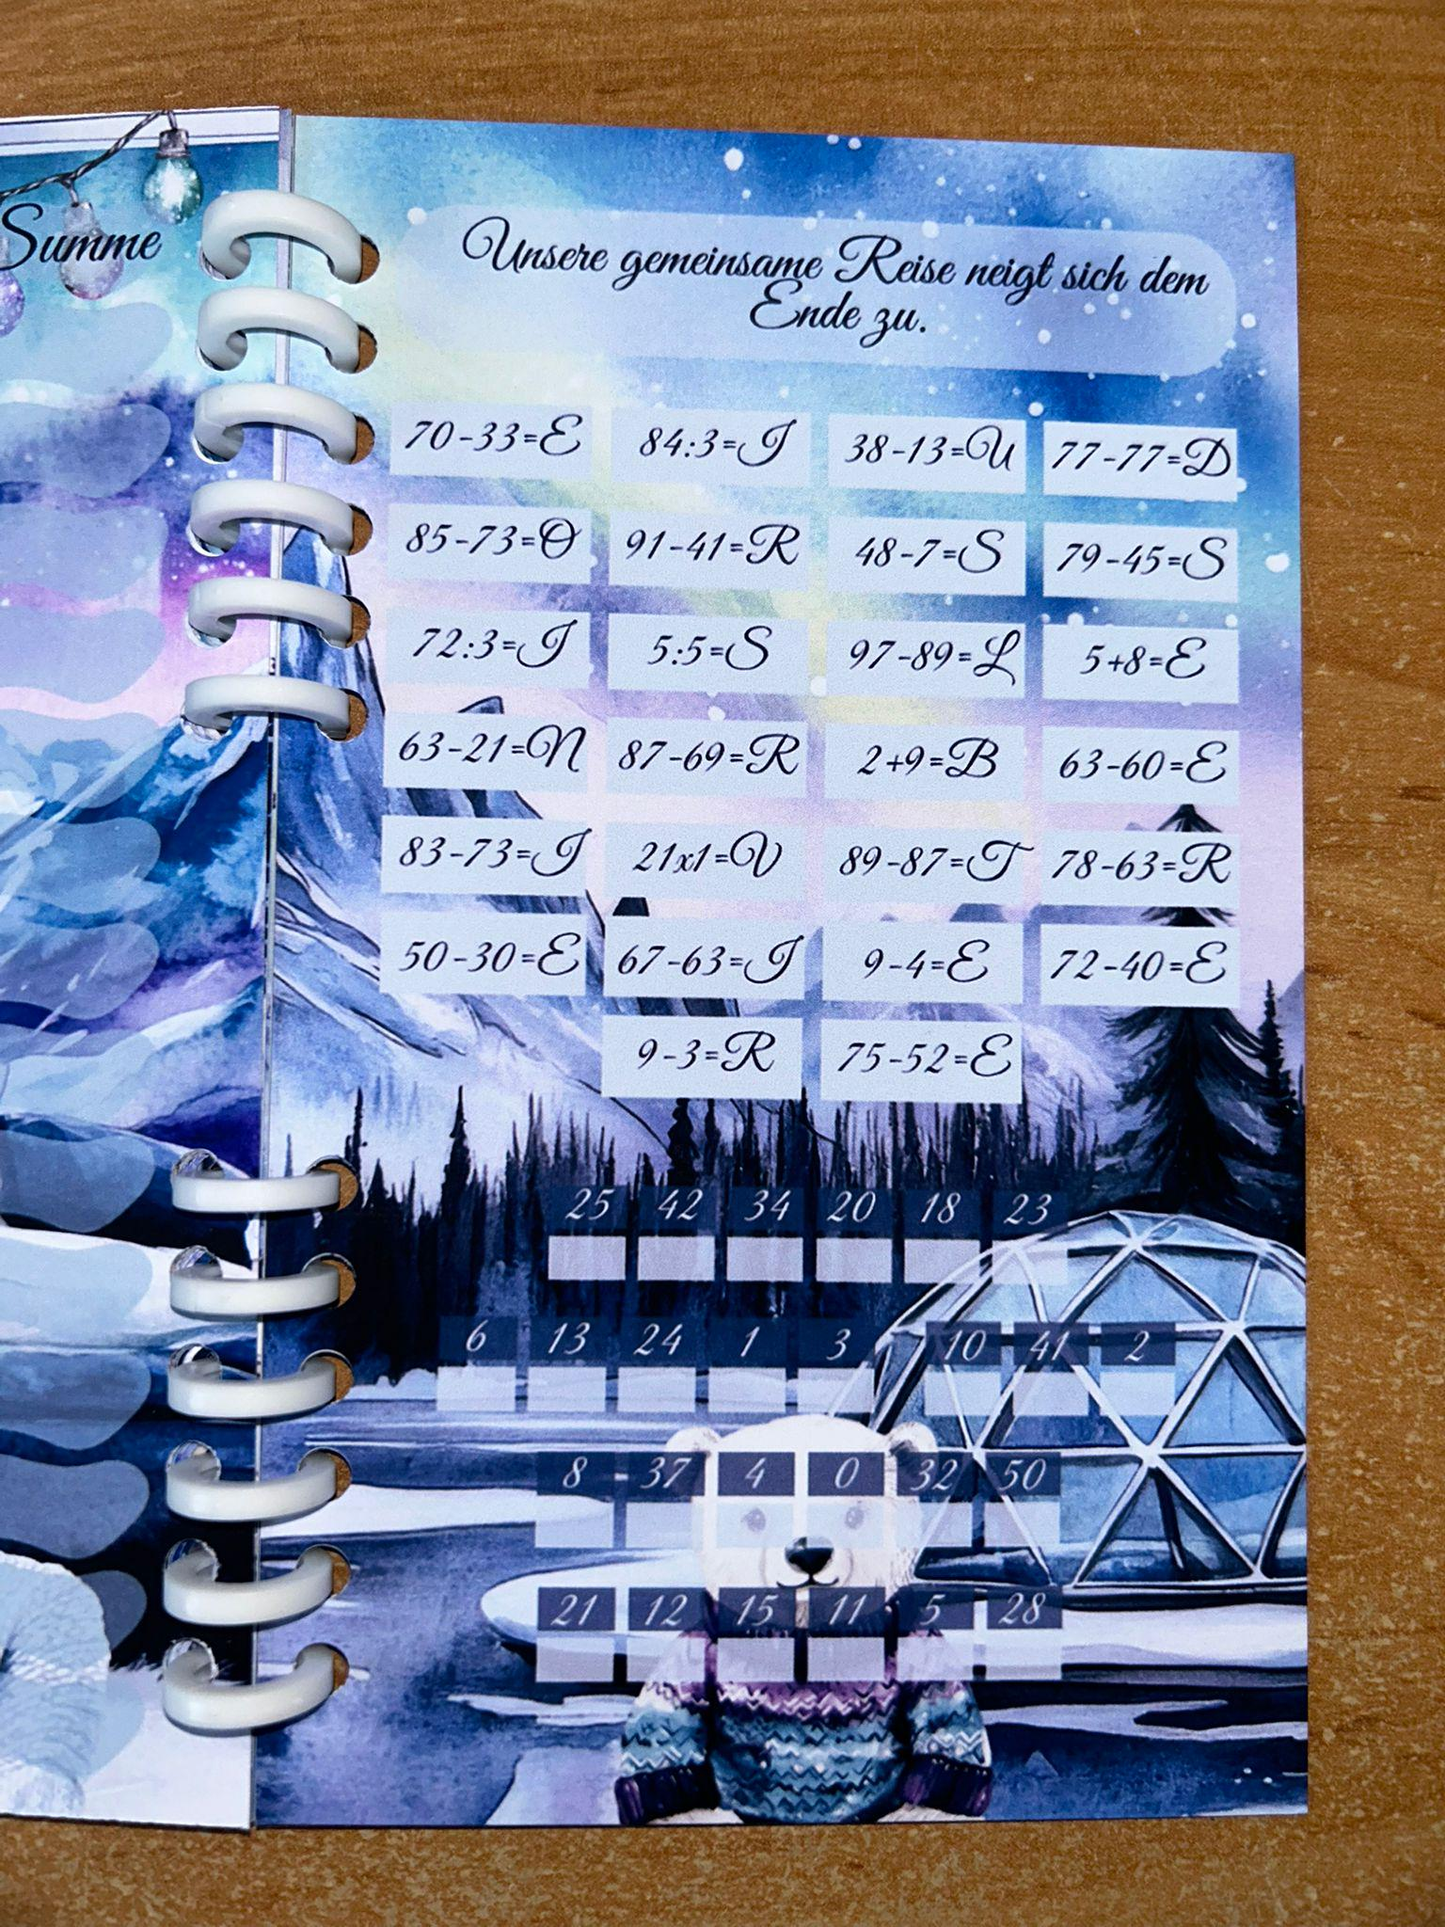 Summe
Unsere gemeinsame Reise neigt sich dem
Ende zu.
70-33=E 84:3=I 38-13=U 77-77=D
85-73=O 91-41=R 48-7=S 79-45=S
72:3=I 5:5=S 97-89=L 5+8=E
63-21=N 87-69=R 2+9=B 63-60=E
83-73=I 21x1=V 89-87=T 78-63=R
50-30=E 67-63=I 9-4=E 72-40=E
9-3=R 75-52=E
25 42 34 20 18 23
6 13 24 1 3 10 41 2
8 - 37 4 0 32 50
21 12 15 11 5 28